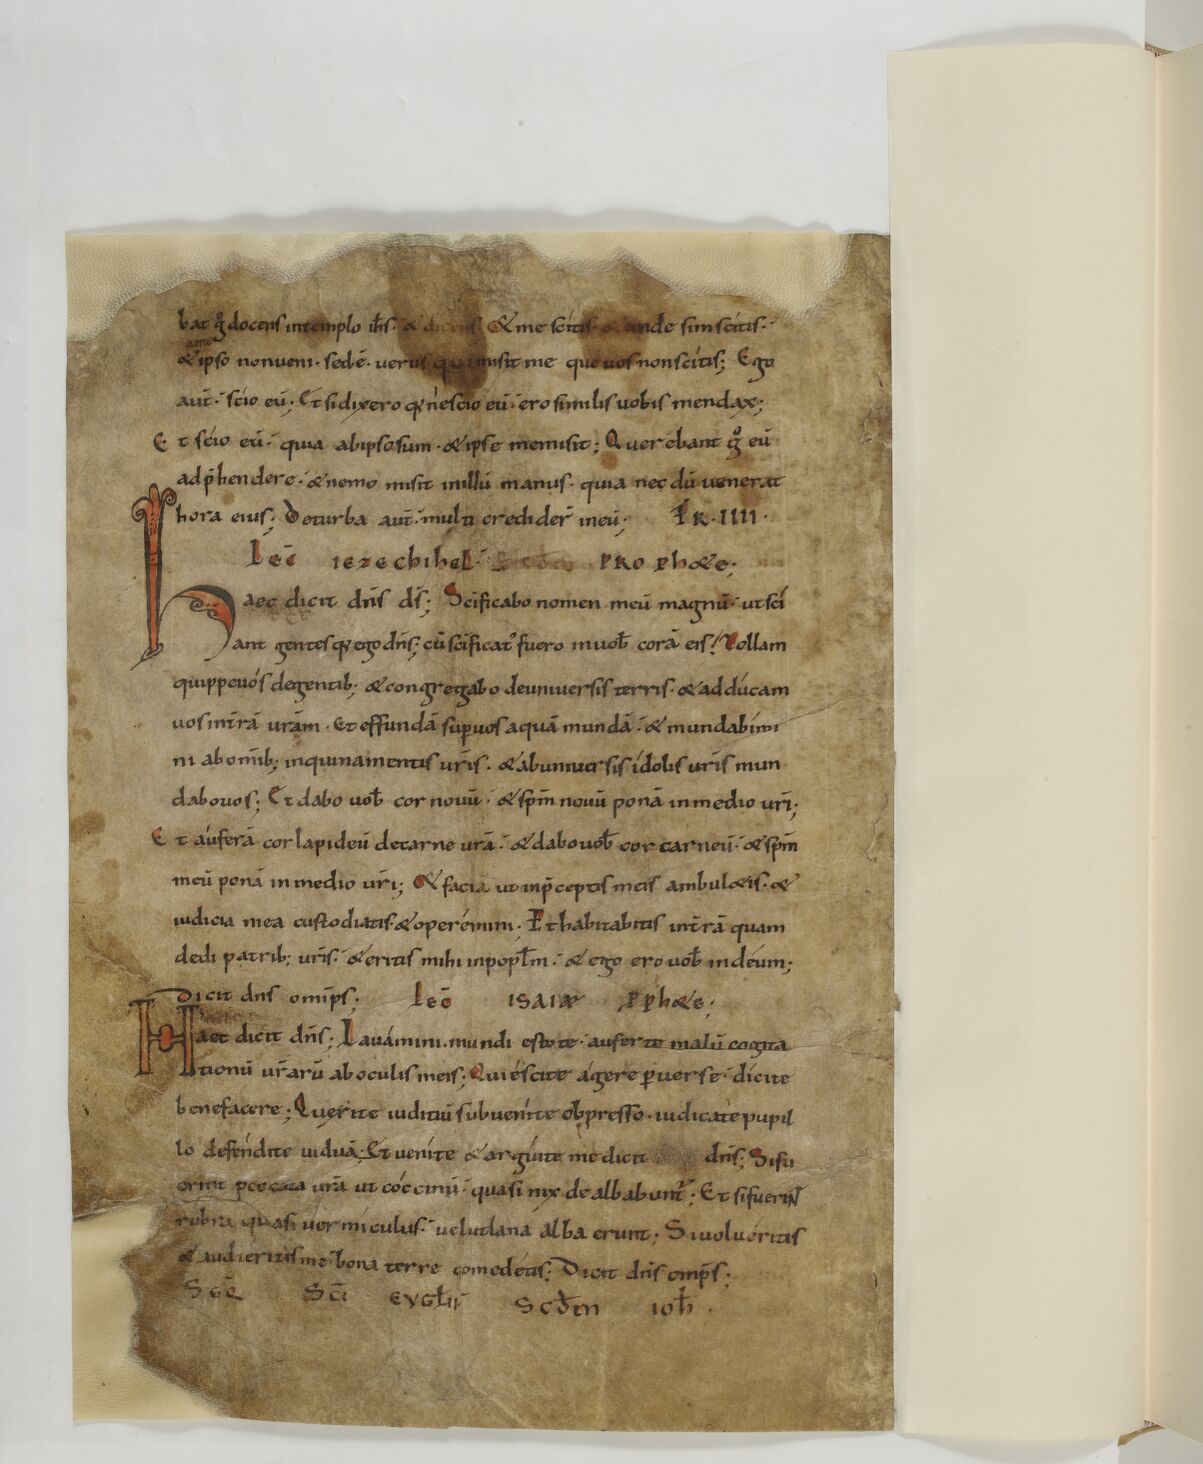 bat g̊ docens intemplo ih̄s· & dicens· & me scitis· & unde sim scitis·
& ame ipso nonveni· sed ē· verus qui misit me quē vos non scitis; Ego
aut̄· scio eū; Et si dixero q nescio eū· ero similis vobis mendax;
Et scio eū· quia abipso sum· & ipse memisit; Querebant g̊ eū
adp̄hendere· & nemo misit inillū manus· quia nec dū venerat
hora eius; Deturba aut̄· multi credider̄ ineū; FR·IIII·
Lec̄ iezechihel· PROph&e;
Haec dicit dn̄s ds̄; Sc̄ificabo nomen meū magnū· ut sci
ant gentes q ego dn̄s; cū sc̄ificat' fuero inuob̄ corā eis; Tollam
quippe vos degentib; & congregabo deuniversis terris· & adducam
vos intr̄ā vr̄am· Et effundā sup vos aquā mundā· & mundabimi
ni abomīb; inquinamentis vr̄is· & abuniversis idolis vr̄is mun
dabo vos; Et dabo vob̄ cor novū· & sp̄m novū ponā inmedio vr̄i;
Et auferā cor lapideū decarne vr̄ā· & dabo vob̄ cor carneū· & sp̄m
meū ponā inmedio vr̄i; & faciā ut inp̄ceptis meis ambul&is· &
iudicia mea custodiatis· & operemini· Et habitabitis intr̄ā quam
dedi patrib; vr̄is· & eritis mihi inpopl̄m· & ego ero vob̄ indeum;
Dicit dn̄s omīps; Lec̄ ISAIAE PPh&e;
Haec dicit dn̄s; Lavamini· mundi estote· auferte malū cogita
tionū vr̄arū aboculis meis; Quiescite agere pverse· dicite
benefacere; Querite iuditiū subvenite obpresso· iudicate pupil
lo defendite viduā; Et venite & arguite me dicit dn̄s; Si fu
erint peccata vr̄ā ut coccinū· quasi nix dealbabunt̄; Et si fuerint
rubra quasi vermiculus· velut lana alba erunt; Si volueritis
& audieritis me· bona terre comedetis; Dicit dn̄s omp̄s;
Seq̄ Sc̄i evgl̄ii Scd̄m ioh̄·